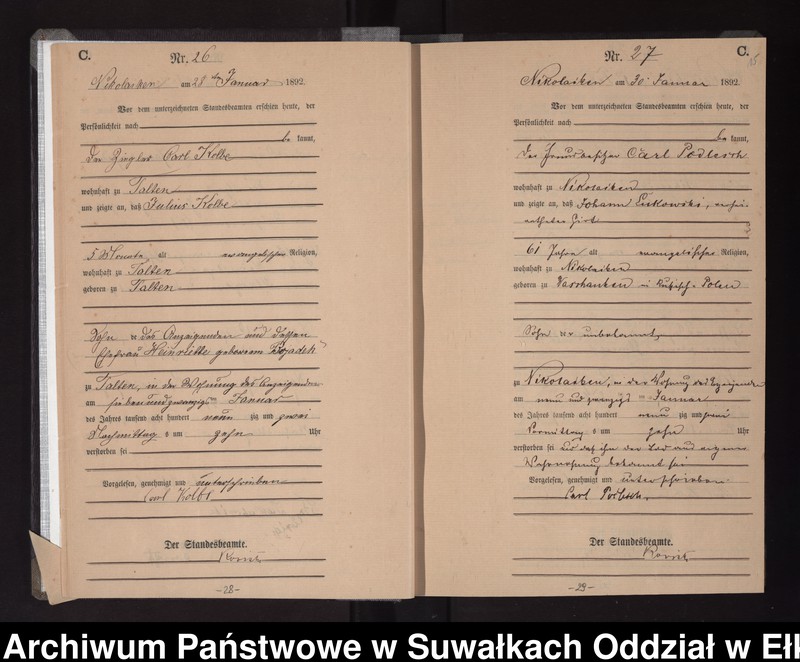 C.
Nr. 26
Nikolaiken am 28ten Januar 1892.
Vor dem unterzeichneten Standesbeamten erschien heute, der
Persönlichkeit nach
be kannt,
der Ziegler Carl Kolbe
wohnhaft zu Talten
und zeigte an, daß Julius Kolbe
5 Monate alt evangelischer Religion,
wohnhaft zu Talten
geboren zu Talten
Sohn des Anzeigenden und dessen
Ehefrau Henriette geborenen
zu Talten, in der Wohnung des Anzeigenden
am sieben und zwanzigsten Januar
des Jahres tausend acht hundert neun zig und zwei
Nachmittag s um zehn Uhr
verstorben sei
Vorgelesen, genehmigt und unterschrieben
Carl Kolbe
Der Standesbeamte.
-28-
Nr. 27
C.
Nikolaiken am 30. Januar 1892.
Vor dem unterzeichneten Standesbeamten erschien heute, der
Persönlichkeit nach
be kannt,
der Carl
wohnhaft zu Nikolaiken
und zeigte an, daß Johann
61 Jahre alt evangelischer Religion,
wohnhaft zu Nikolaiken
geboren zu in Polen
Sohn der unbekannt
zu Nikolaiken, in der Wohnung des Anzeigenden
am neun und zwanzigsten Januar
des Jahres tausend acht hundert neun zig und zwei
Vormittag s um zehn Uhr
verstorben sei und daß ihm der Tod aus eigener
Wahrnehmung bekannt sei
Vorgelesen, genehmigt und unterschrieben
Carl
Der Standesbeamte.
-29-
Archiwum Państwowe w Suwałkach Oddział w Eł